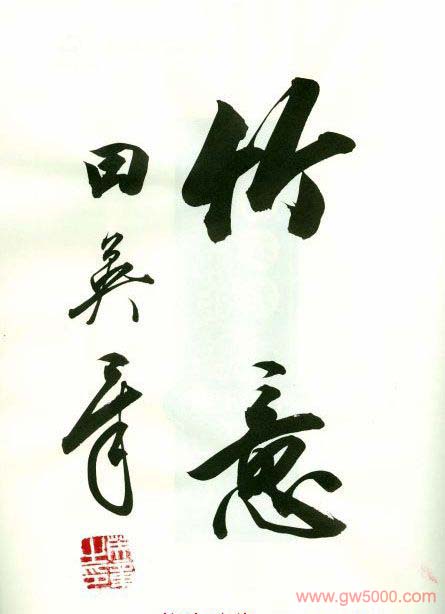 竹意
田英章
www.gw5000.com